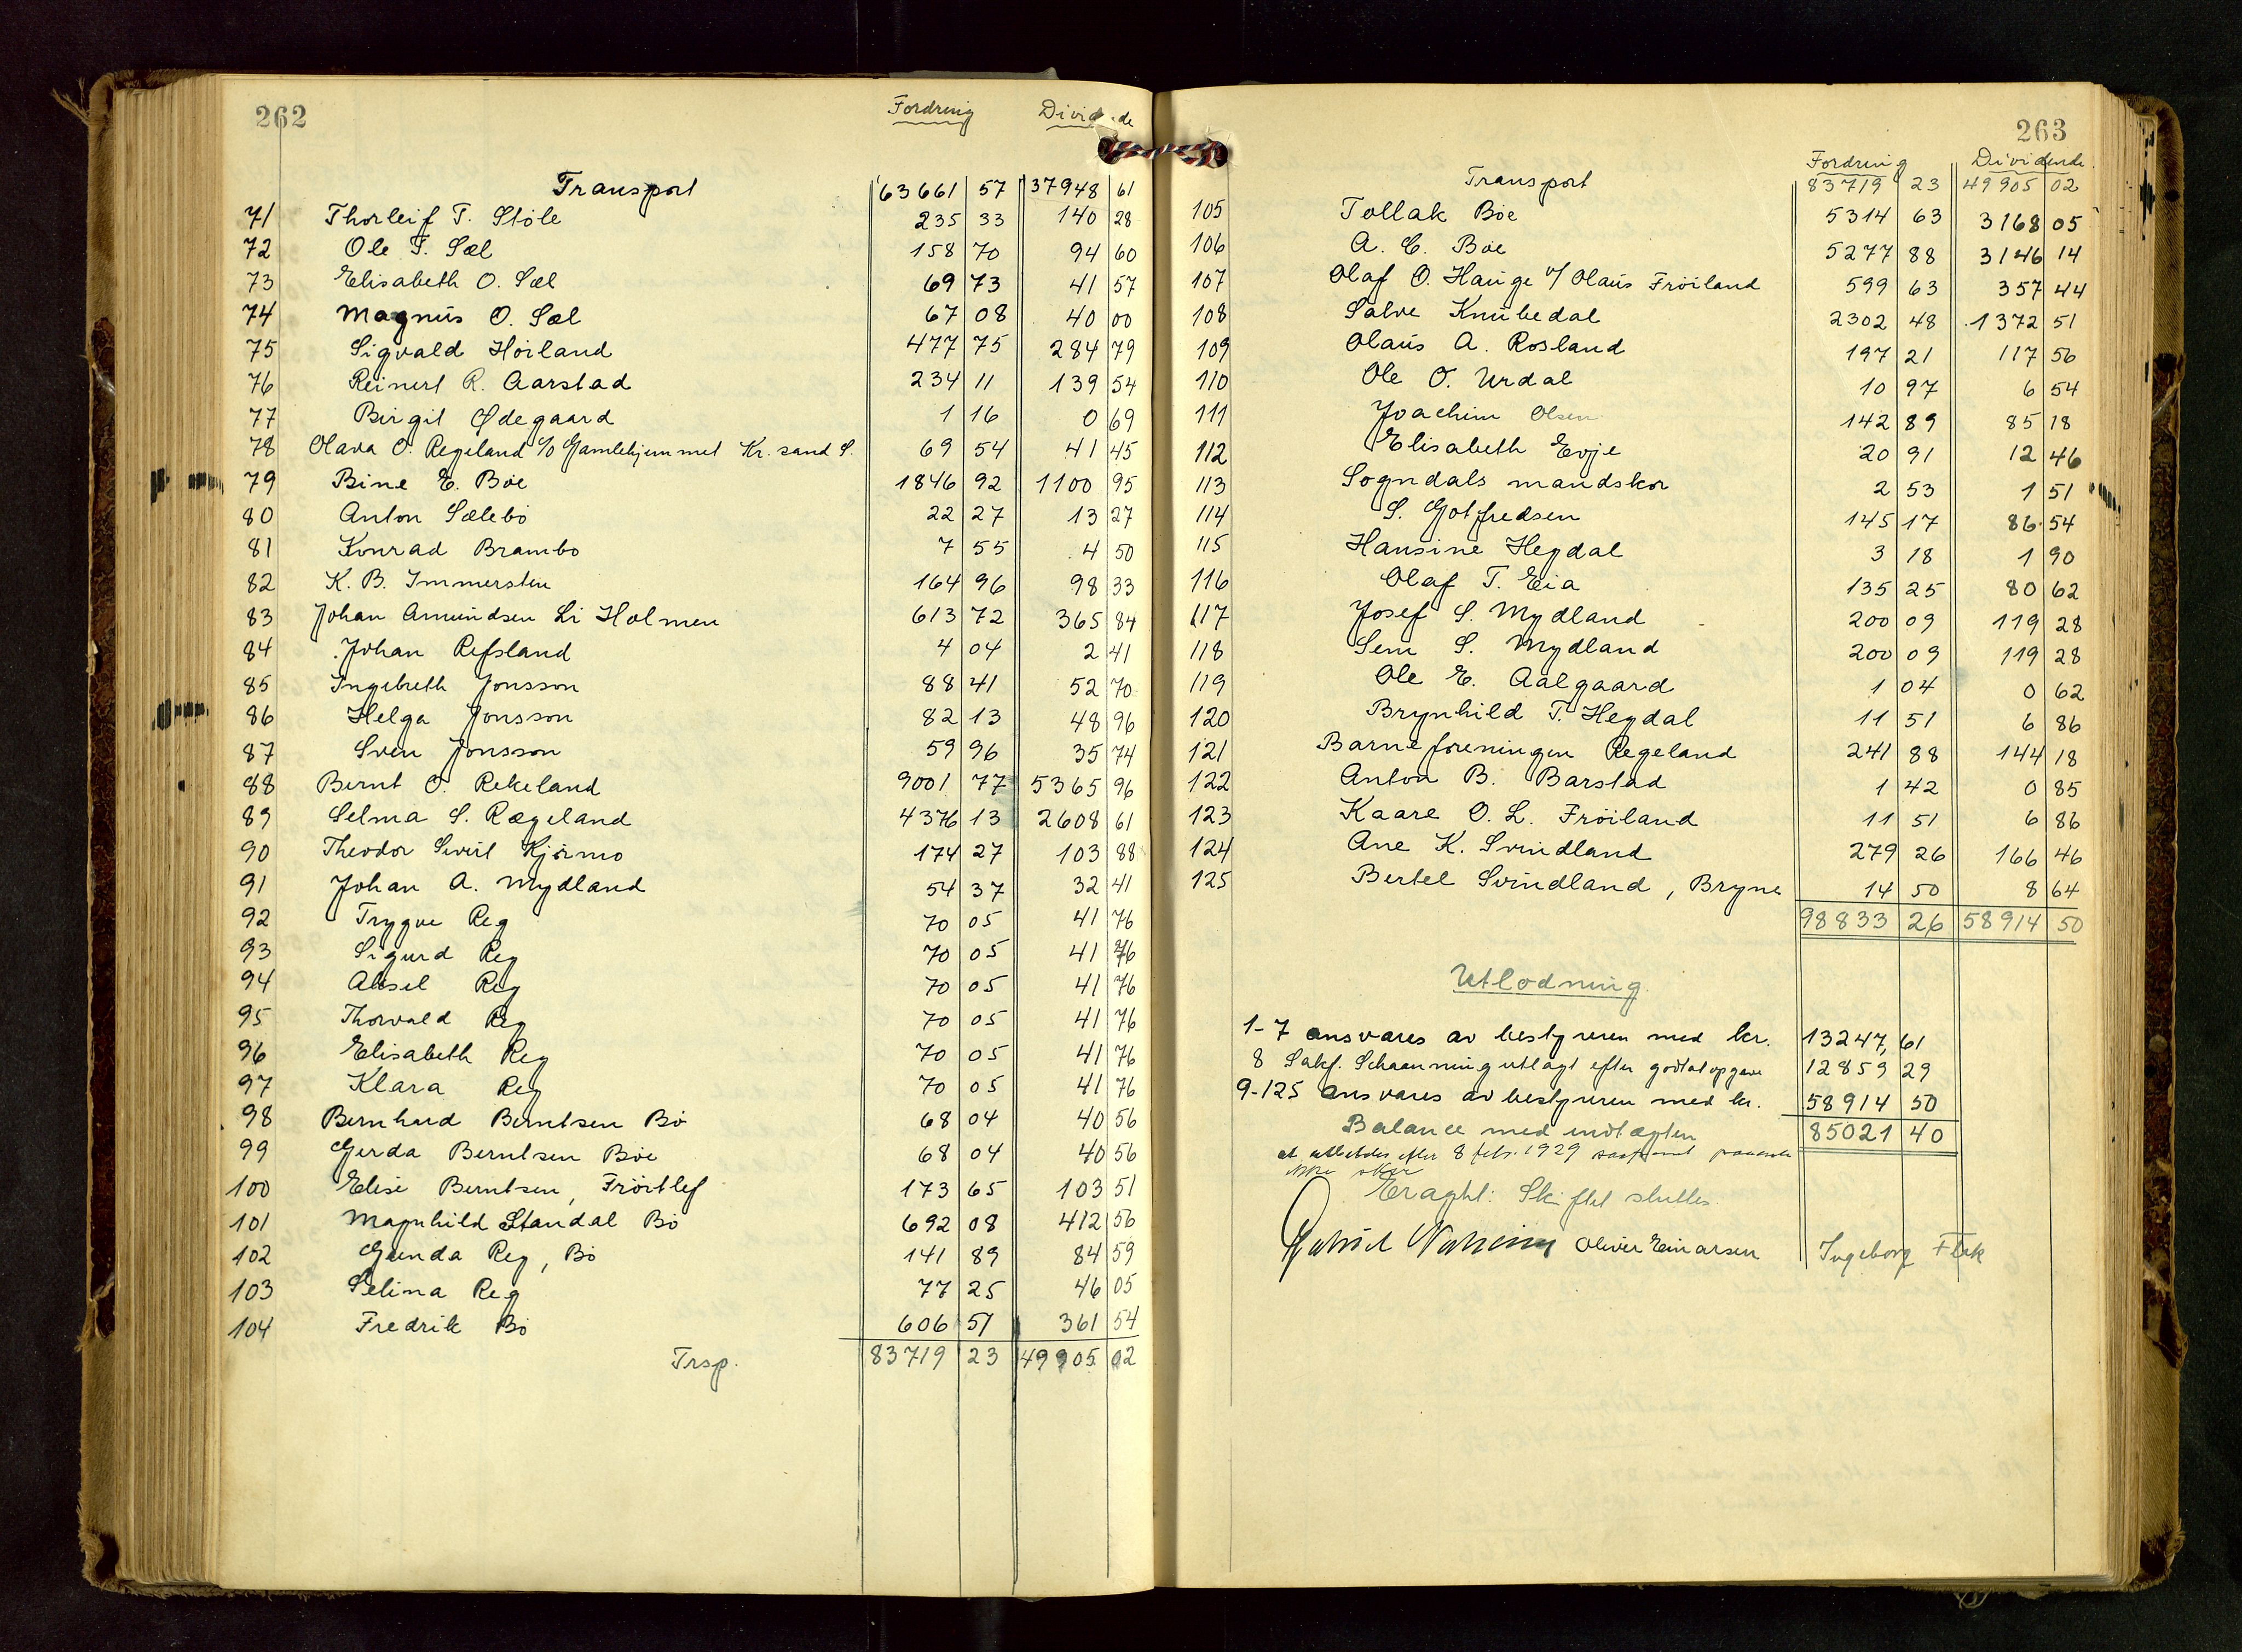 262
Fordring Dividende
Transport 63661 57 37948 61
71 Thorleif T. Stöle 235 33 140 28
72 Ole T. Sæl 158 70 94 60
73 Elisabeth O. Sæl 69 73 41 57
74 Magnus O. Sæl 67 08 40 00
75 Sigvald Höiland 477 75 284 79
76 Reinert R. Aarstad 234 11 139 54
77 Birgit Ødegaard 1 16 0 69
78 Olava O. Regeland c/o Gamlehjemmet Kr. sand S. 69 54 41 45
79 Bine E. Böe 1846 92 1100 95
80 Anton Sælebö 22 27 13 27
81 Konrad Brambo 7 55 4 50
82 K. B. Immerstein 164 96 98 33
83 Johan Amundsen Li Holmen 613 72 365 84
84 Johan Refsland 4 04 2 41
85 Ingebreth Jonsson 88 41 52 70
86 Helga Jonsson 82 13 48 96
87 Sven Jonsson 59 96 35 74
88 Bernt O. Rekeland 9001 77 5365 96
89 Selma S. Rægeland 4376 13 2608 61
90 Theodor Sivert Kjörmo 174 27 103 88
91 Johan A. Mydland 54 37 32 41
92 Trygve Reg 70 05 41 76
93 Sigurd Reg 70 05 41 76
94 Aksel Reg 70 05 41 76
95 Thorvald Reg 70 05 41 76
96 Elisabeth Reg 70 05 41 76
97 Klara Reg 70 05 41 76
98 Bernhard Berntsen Bö 68 04 40 56
99 Gerda Berntsen Böe 68 04 40 56
100 Elise Berntsen, Fröitlef 173 65 103 51
101 Magnhild Standal Bö 692 08 412 56
102 Gunda Reg, Bö 141 89 84 59
103 Selina Reg 77 25 46 05
104 Fredrik Bö 606 51 361 54
Trsp. 83719 23 49905 02
263
Fordring Dividende.
Transport 83719 23 49905 02
105 Tollak Böe 5314 63 3168 05
106 A. E. Böe 5277 88 3146 14
107 Olaf O. Hauge v/ Olaus Fröiland 599 63 357 44
108 Salve Knubedal 2302 48 1372 51
109 Olaus A. Rosland 197 21 117 56
110 Ole O. Urdal 10 97 6 54
111 Joachim Olsen 142 89 85 18
112 Elisabeth Evje 20 91 12 46
113 Sogndals mandskor 2 53 1 51
114 S. Gotfredsen 145 17 86 54
115 Hansine Hegdal 3 18 1 90
116 Olaf T. Eia 135 25 80 62
117 Josef S. Mydland 200 09 119 28
118 Sem S. Mydland 200 09 119 28
119 Ole E. Aalgaard 1 04 0 62
120 Brynhild T. Hegdal 11 51 6 86
121 Barneforeningen Regeland 241 88 144 18
122 Anton B. Barstad 1 42 0 85
123 Kaare O. L. Fröiland 11 51 6 86
124 Ane K. Svindland 279 26 166 46
125 Bertel Svindland, Bryne 14 50 8 64
98833 26 58914 50
Utlodning.
1-7 ansvares av bestyreren med kr. 13247,61
8 Sakf. Schaanning utlagt efter godtat opgave 12859 29
9-125 ansvares av bestyreren med kr. 58914 50
Balance med indtægten 85021 40
at utbetales efter 8 febr. 1929 saafremt paaanke
ikke sker
Eragtet: Skiftet sluttes.
Oliver Einarsen Ingeborg Flak